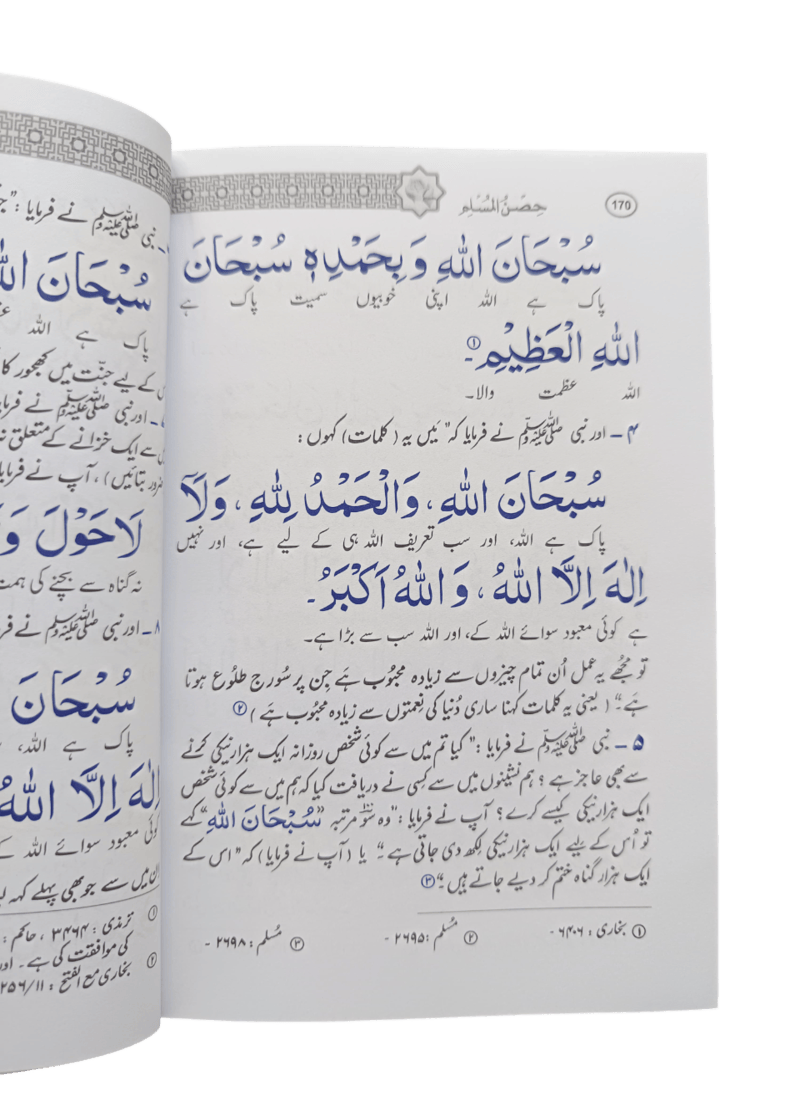 170
حِصنُ المُسلِم
سُبْحَانَ اللّٰهِ وَ بِحَمْدِہٖ سُبْحَانَ
پاک ہے اللہ اپنی خوبیوں سمیت پاک ہے
اللّٰهِ الْعَظِيْمِ۔①
اللہ عظمت والا۔
۴ – اور نبی ﷺ نے فرمایا کہ "میں یہ (کلمات) کہوں :
سُبْحَانَ اللّٰهِ ، وَالْحَمْدُ لِلّٰهِ ، وَلَآ
پاک ہے اللہ، اور سب تعریف اللہ ہی کے لیے ہے، اور نہیں
اِلٰهَ اِلَّا اللّٰهُ ، وَاللّٰهُ اَكْبَرُ۔
ہے کوئی معبود سوائے اللہ کے، اور اللہ سب سے بڑا ہے۔
تو مجھے یہ عمل اُن تمام چیزوں سے زیادہ محبُوب ہے جِن پر سُورج طلُوع ہوتا
ہے"۔ ( یعنی یہ کلمات کہنا ساری دُنیا کی نِعمتوں سے زیادہ محبُوب ہے ) ②
۵ – نبی ﷺ نے فرمایا : "کیا تم میں سے کوئی شخص روزانہ ایک ہزار نیکی کرنے
سے بھی عاجز ہے ؟ ہم نشینوں میں سے کسی نے دریافت کیا کہ ہم میں سے کوئی شخص
ایک ہزار نیکی کیسے کرے ؟ آپ نے فرمایا : "وہ سَو مرتبہ "سُبْحَانَ اللّٰهِ" کہے
تو اُس کے لیے ایک ہزار نیکی لکھ دی جاتی ہے"۔ یا ( آپ نے فرمایا ) کہ "اس کے
ایک ہزار گناہ ختم کر دیے جاتے ہیں"۔ ③
① بخاری : ۶۴۰۶ - ② مُسلم : ۲۶۹۵ - ③ مُسلم : ۲۶۹۸ -
نبی ﷺ نے فرمایا : "
سُبْحَانَ
پاک ہے اللہ
کے لیے جنّت میں کھجور کا
اور نبی ﷺ نے
سے ایک خزانے کے متعلق نہ
بتائیں) ، آپ نے
لَاحَوْلَ
نہ گناہ سے بچنے کی ہمت
۸ – اور نبی ﷺ نے
سُبْحَانَ
پاک ہے اللہ،
اِلٰهَ اِلَّا اللّٰهُ
کوئی معبود سوائے اللہ کے
میں سے جو بھی پہلے کہہ
① ترمذی : ۳۴۶۴ ، حاکم :
کی موافقت کی ہے۔ اور
② بخاری مع الفتح : ۱۱/